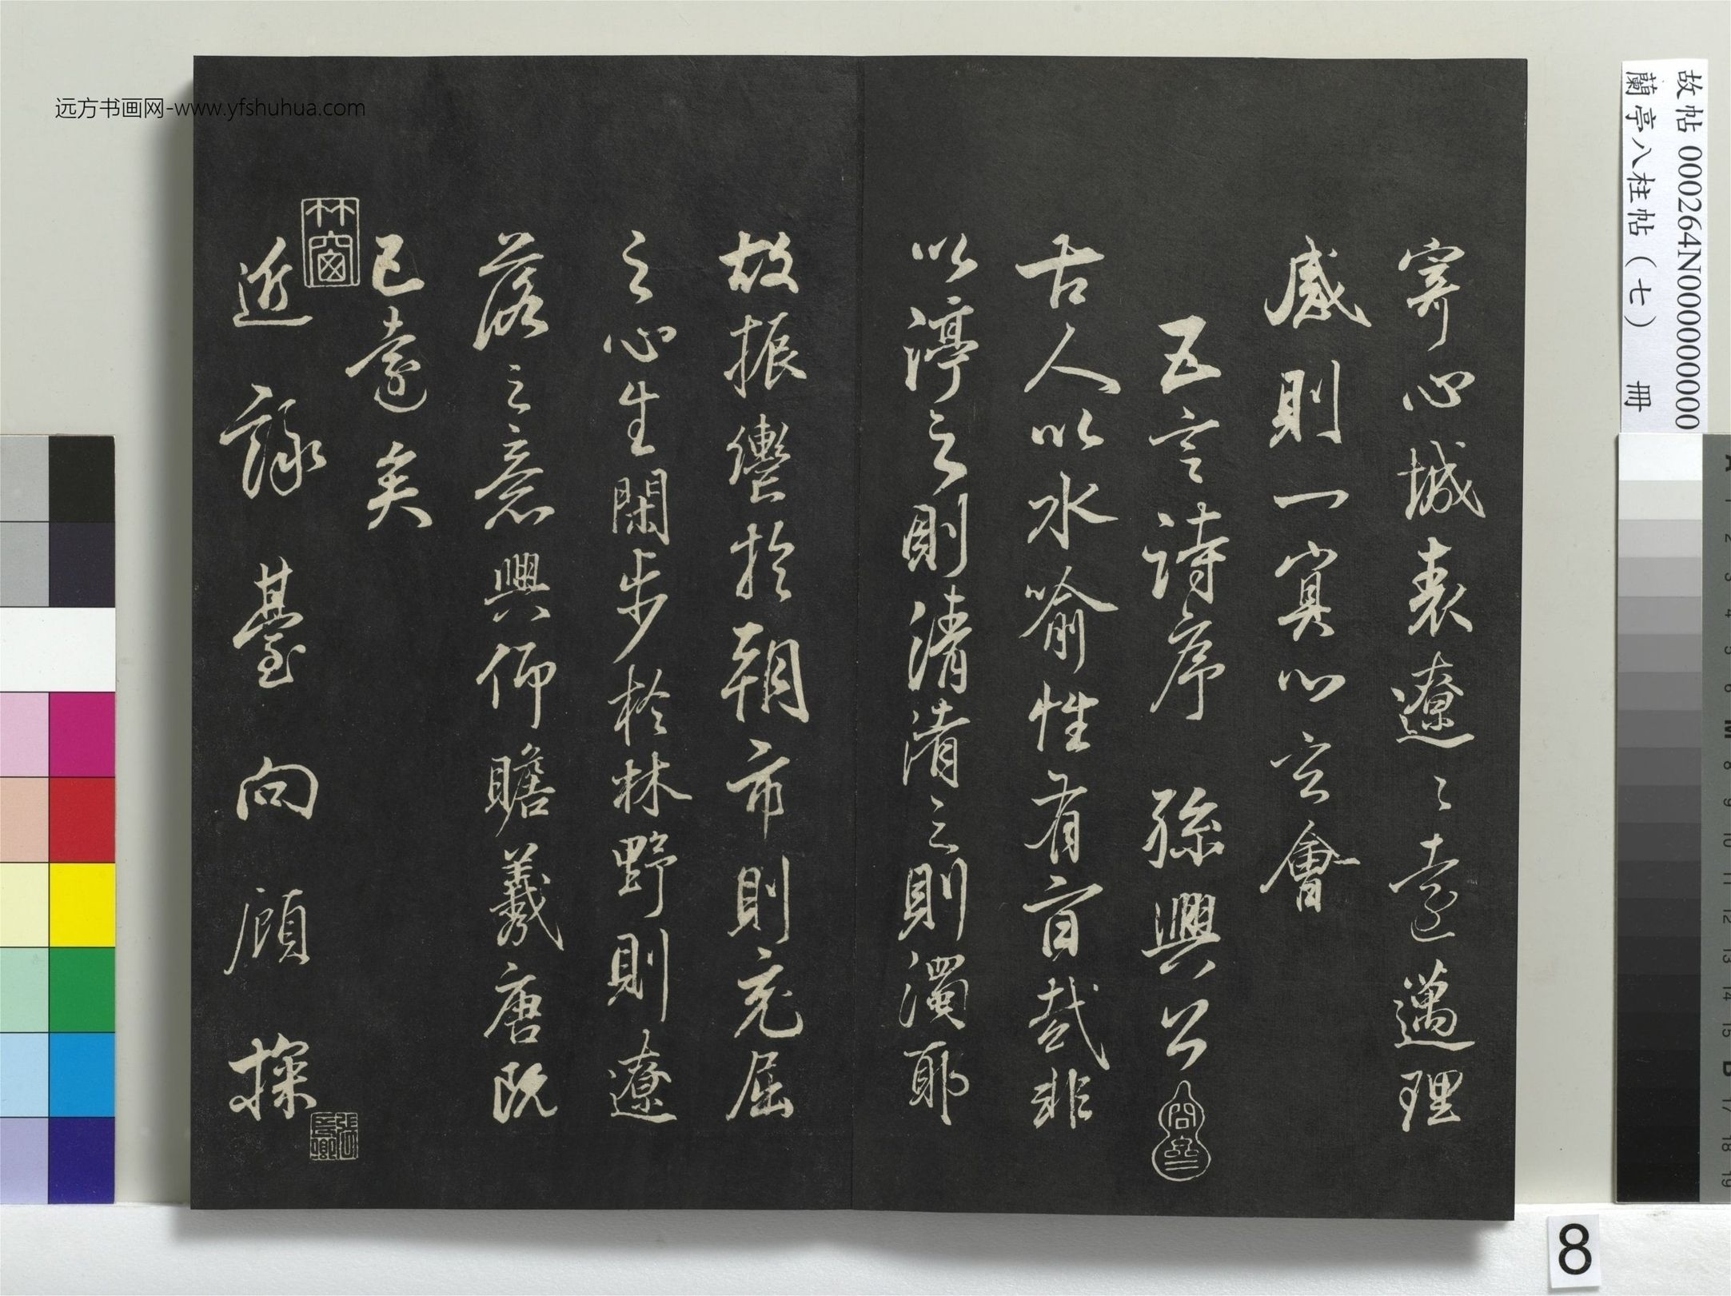 远方书画网-www.yfshuhua.com
故帖 000264N000000000
蘭亭八柱帖（七） 冊
寄心域表遼〻遠邁理
感則一冥心玄會
五言詩序 孫興公
古人以水喻性有旨哉非
以渟之則清淆之則濁耶
故振轡於朝市則充屈
之心生閑步於林野則遼
落之意興仰瞻羲唐既
已遠矣
林窗
近詠臺向顧探
8